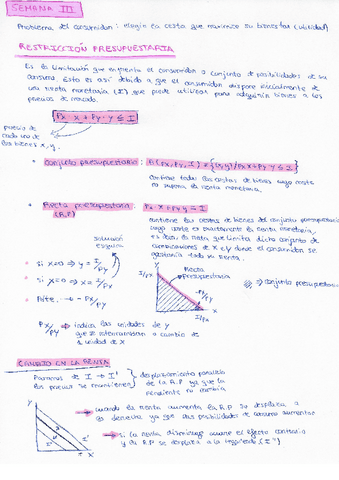 SEMANA III
Problema del consumidor: elegir la cesta que maximiza su bienestar (utilidad)
RESTRICCIÓN PRESUPUESTARIA
Es la limitación que enfrenta el consumidor o conjunto de posibilidades de su
consumo. Esto es así debido a que el consumidor dispone inicialmente de
una renta monetaria (I) que puede utilizar para adquirir bienes a los
precios de mercado.
Px·x + Py·y ≤ I
precio de
cada uno de
los bienes x, y.
Conjunto presupuestario: B(Px, Py, I) = {(x,y)/Px·x+Py·y ≤ I}
contiene todas las cestas de bienes cuyo coste
no supera la renta monetaria.
Recta presupuestaria: Px·x + Py·y = I
(R.P)
contiene las cestas de bienes del conjunto presupuestario
cuyo coste es exactamente la renta monetaria,
es decir, la recta que limita dicho conjunto de
combinaciones de x e y donde el consumidor se
gastaría toda su renta.
solución
esquina
si x=0 ⇒ y = I/Py
si y=0 ⇒ x = I/Px
Pdte. → - Px/Py
I/Py
Recta
presupuestaria
-Px/Py
I/Px
⇒ conjunto presupuestario
Px/Py ⇒ indica las unidades de y
que se intercambian a cambio de
1 unidad de x
CAMBIO EN LA RENTA
Pasamos de I → I'
los precios se mantienen
desplazamiento paralelo
de la R.P ya que la
pendiente no cambia
y
x
cuando la renta aumenta la R.P se desplaza a
la derecha ya que sus posibilidades de consumo aumentan
si la renta disminuye ocurre el efecto contrario
y la R.P se desplaza a la izquierda (I'')